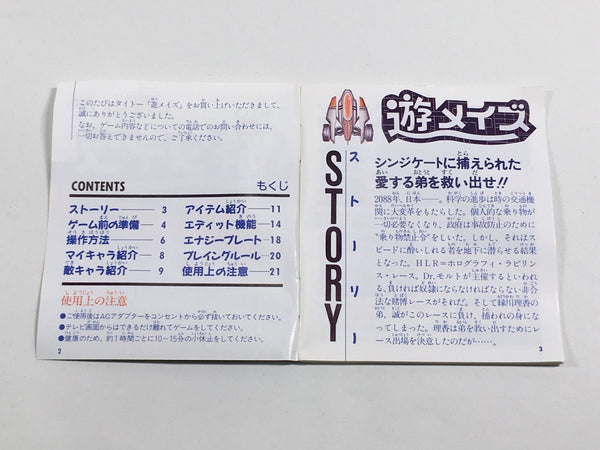 このたびはタイトー「遊メイズ」をお買い上げいただきまして、
誠にありがとうございました。
なお、ゲーム内容などについての電話でのお問い合わせには、
一切お答えできませんので、ご了承ください。
CONTENTS もくじ
ストーリー 3
ゲーム前の準備 4
操作方法 6
マイキャラ紹介 8
敵キャラ紹介 9
アイテム紹介 11
エディット機能 14
エナジープレート 18
プレイングルール 20
使用上の注意 21
使用上の注意
●ご使用後はACアダプターをコンセントから必ず抜いておいてください。
●テレビ画面からはできるだけ離れてゲームをしてください。
●健康のため、約1時間ごとに10-15分の小休止をしてください。
2
STORY
ストーリー
遊メイズ
シンジケートに捕えられた
愛する弟を救い出せ!!
2088年、日本──。科学の進歩は時の交通機
関に大変革をもたらした。個人的な乗り物が
一切必要なくなり、政府は事故防止のために
"乗り物禁止令"をしいた。しかし、それはス
ピードに酔いしれる者を地下に潜らせる結果
となった。HLR=ホログラフィ・ラビリン
ス・レース。Dr.モルトが主催するといわれ
る、負ければ奴隷にならなければならない非合
法な賭博レースがそれだ。そして緑川理香の
弟、誠がこのレースに負け、捕われの身にな
ってしまった。理香は弟を救い出すためにレ
ース出場を決意したのだが……。
3